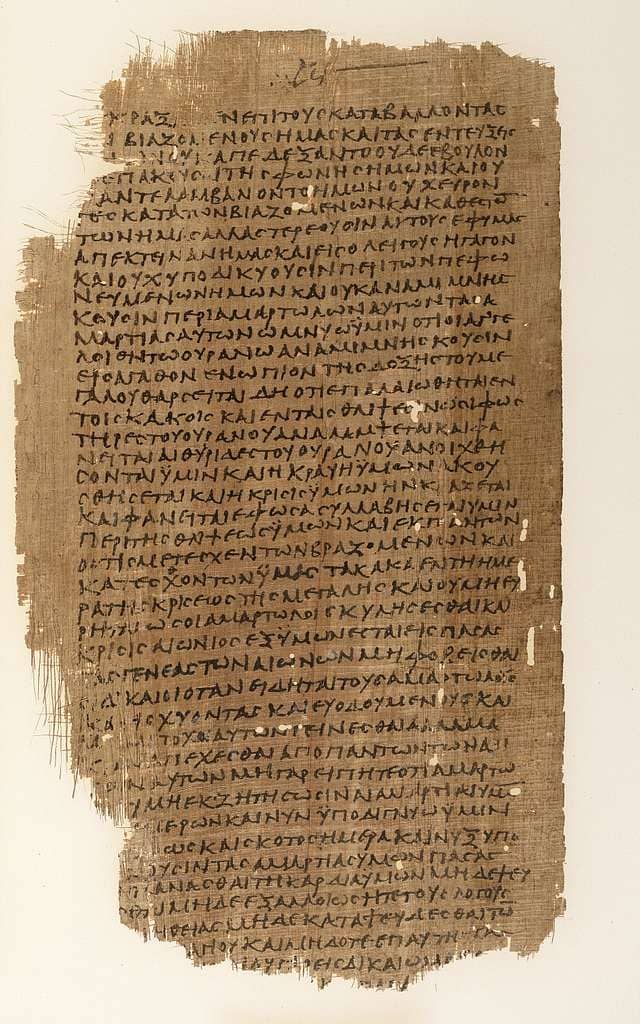 ΚΡΑΞ ΝΕΠΙΤΟΥΣΚΑΤΑΒΑΛΛΟΝΤΑΣ
ΒΙΑΖΟΜΕΝΟΥΣΗΜΑΣΚΑΙΤΑΣΕΝΤΕΥΞΕΙΣ
ΑΠΕΔΕΞΑΝΤΟΟΥΔΕΕΒΟΥΛΟΝ
ΤΗΣΦΩΝΗΣΗΜΩΝΚΑΙΟΥ
ΑΝΤΕΛΑΜΒΑΝΟΝΤΟΗΜΩΝΟΥΧΕΥΡΟΝ
ΤΕΣΚΑΤΑΤΩΝΒΙΑΖΟΜΕΝΩΝΚΑΙΚΑΘΕΣΘΟ
ΤΩΝΗΜΑΣΑΛΛΑΣΤΕΡΕΟΥΣΙΝΑΥΤΟΥΣΕΦΥΜΑΣ
ΑΠΕΚΤΕΙΝΑΝΗΜΑΣΚΑΙΕΙΣΟΛΕΙΓΟΥΣΗΓΑΓΟΝ
ΚΑΙΟΥΧΥΠΟΔΙΚΥΟΥΣΙΝΠΕΡΙΤΩΝΠΕΦΩ
ΝΕΥΜΕΝΩΝΗΜΩΝΚΑΙΟΥΚΑΝΑΜΙΜΝΗΣ
ΚΟΥΣΙΝΠΕΡΙΑΜΑΡΤΩΛΩΝΑΥΤΩΝΤΑΣΑ
ΜΑΡΤΙΑΣΑΥΤΩΝΩΜΝΥΩΫΜΙΝΟΤΙΟΙΑΓΓΕ
ΛΟΙΕΝΤΩΟΥΡΑΝΩΑΝΑΜΙΜΝΗΣΚΟΥΣΙΝ
ΕΙΣΑΓΑΘΟΝΕΝΩΠΙΟΝΤΗΣΔΟΞΗΣΤΟΥΜΕ
ΓΑΛΟΥΘΑΡΣΕΙΤΑΙΔΗΟΤΙΕΠΑΛΑΙΩΘΗΤΑΙΕΝ
ΤΟΙΣΚΑΚΟΙΣΚΑΙΕΝΤΑΙΣΘΛΙΨΕΣΙΝΩΣΙΦΩΣ
ΤΗΡΕΣΤΟΥΟΥΡΑΝΟΥΑΝΑΛΑΜΨΕΤΑΙΚΑΙΦΑ
ΝΕΙΤΑΙΑΙΘΥΡΙΔΕΣΤΟΥΟΥΡΑΝΟΥΑΝΟΙΧΘΗ
ΣΟΝΤΑΙΫΜΙΝΚΑΙΗΚΡΑΥΗΫΜΩΝΑΚΟΥ
ΣΘΗΣΕΤΑΙΚΑΙΗΚΡΙΣΙΣΫΜΩΝΗΝΚΡΑΖΕΤΑΙ
ΚΑΙΦΑΝΕΙΤΑΙΕΦΩΣΑΣΥΛΛΑΒΗΣΕΤΑΙΫΜΙΝ
ΠΕΡΙΤΗΣΘΛΙΨΕΩΣΫΜΩΝΚΑΙΕΚΠΑΝΤΩΝ
ΟΣΤΙΣΜΕΤΕΣΧΕΝΤΩΝΒΡΑΖΟΜΕΝΩΝΚΑΙ
ΚΑΤΕΣΧΟΝΤΩΝΫΜΑΣΤΑΚΑΚΑΕΝΤΗΗΜΕ
ΡΑΤΗΣΚΡΙΣΕΩΣΤΗΣΜΕΓΑΛΗΣΚΑΙΟΥΜΗΕΥ
ΡΗΤΑΙΩΣΟΙΑΜΑΡΤΩΛΟΙΣΚΥΛΗΣΕΣΘΑΙΚΑΙ
ΚΡΙΣΙΣΑΙΩΝΙΟΣΕΞΥΜΩΝΕΣΤΑΙΕΙΣΠΑΣΑΣ
ΓΕΝΕΑΣΤΩΝΑΙΩΝΩΝΜΗΦΟΒΕΙΣΘΑΙ
ΚΑΙΟΙΟΤΑΝΕΙΔΗΤΑΙΤΟΥΣΑΜΑΡΤΩΛΟΥΣ
ΧΥΟΝΤΑΣΚΑΙΕΥΟΔΟΥΜΕΝΟΥΣΚΑΙ
ΤΟΧΟΙΑΥΤΩΝΓΕΙΝΕΣΘΑΙΑΛΛΑΜΑ
ΑΠΕΧΕΣΘΑΙΑΠΟΠΑΝΤΩΝΤΩΝΑΔΙ
ΑΥΤΩΝΜΗΓΑΡΕΙΠΗΤΕΟΤΙΑΜΑΡΤΩ
ΥΜΗΕΚΖΗΤΗΣΩΣΙΝ
ΜΕΡΩΝΚΑΙΝΥΝΫΠΟΔΙΓΝΥΩΫΜΙΝ
ΩΣΚΑΙΣΚΟΤΟΣΗΜΕΡΑΚΑΙΝΥΞΥΠΟ
ΟΥΣΙΝΤΑΣΑΜΑΡΤΙΑΣΥΜΩΝΠΑΣΑΣ
ΑΝΑΣΘΑΙΤΗΚΑΡΔΙΑΥΜΩΝΜΗΔΕΨΕΥ
ΜΗΔΕΕΞΑΛΛΟΙΩΣΗΤΕΤΟΥΣΛΟΓΟΥΣ
ΘΕΙΑΣΜΗΔΕΚΑΤΑΨΕΥΔΕΣΘΑΙΤΩ
ΓΙΟΥΚΑΙΜΗΔΟΤΕΕΠΑ
ΔΙΚΑΙΩ